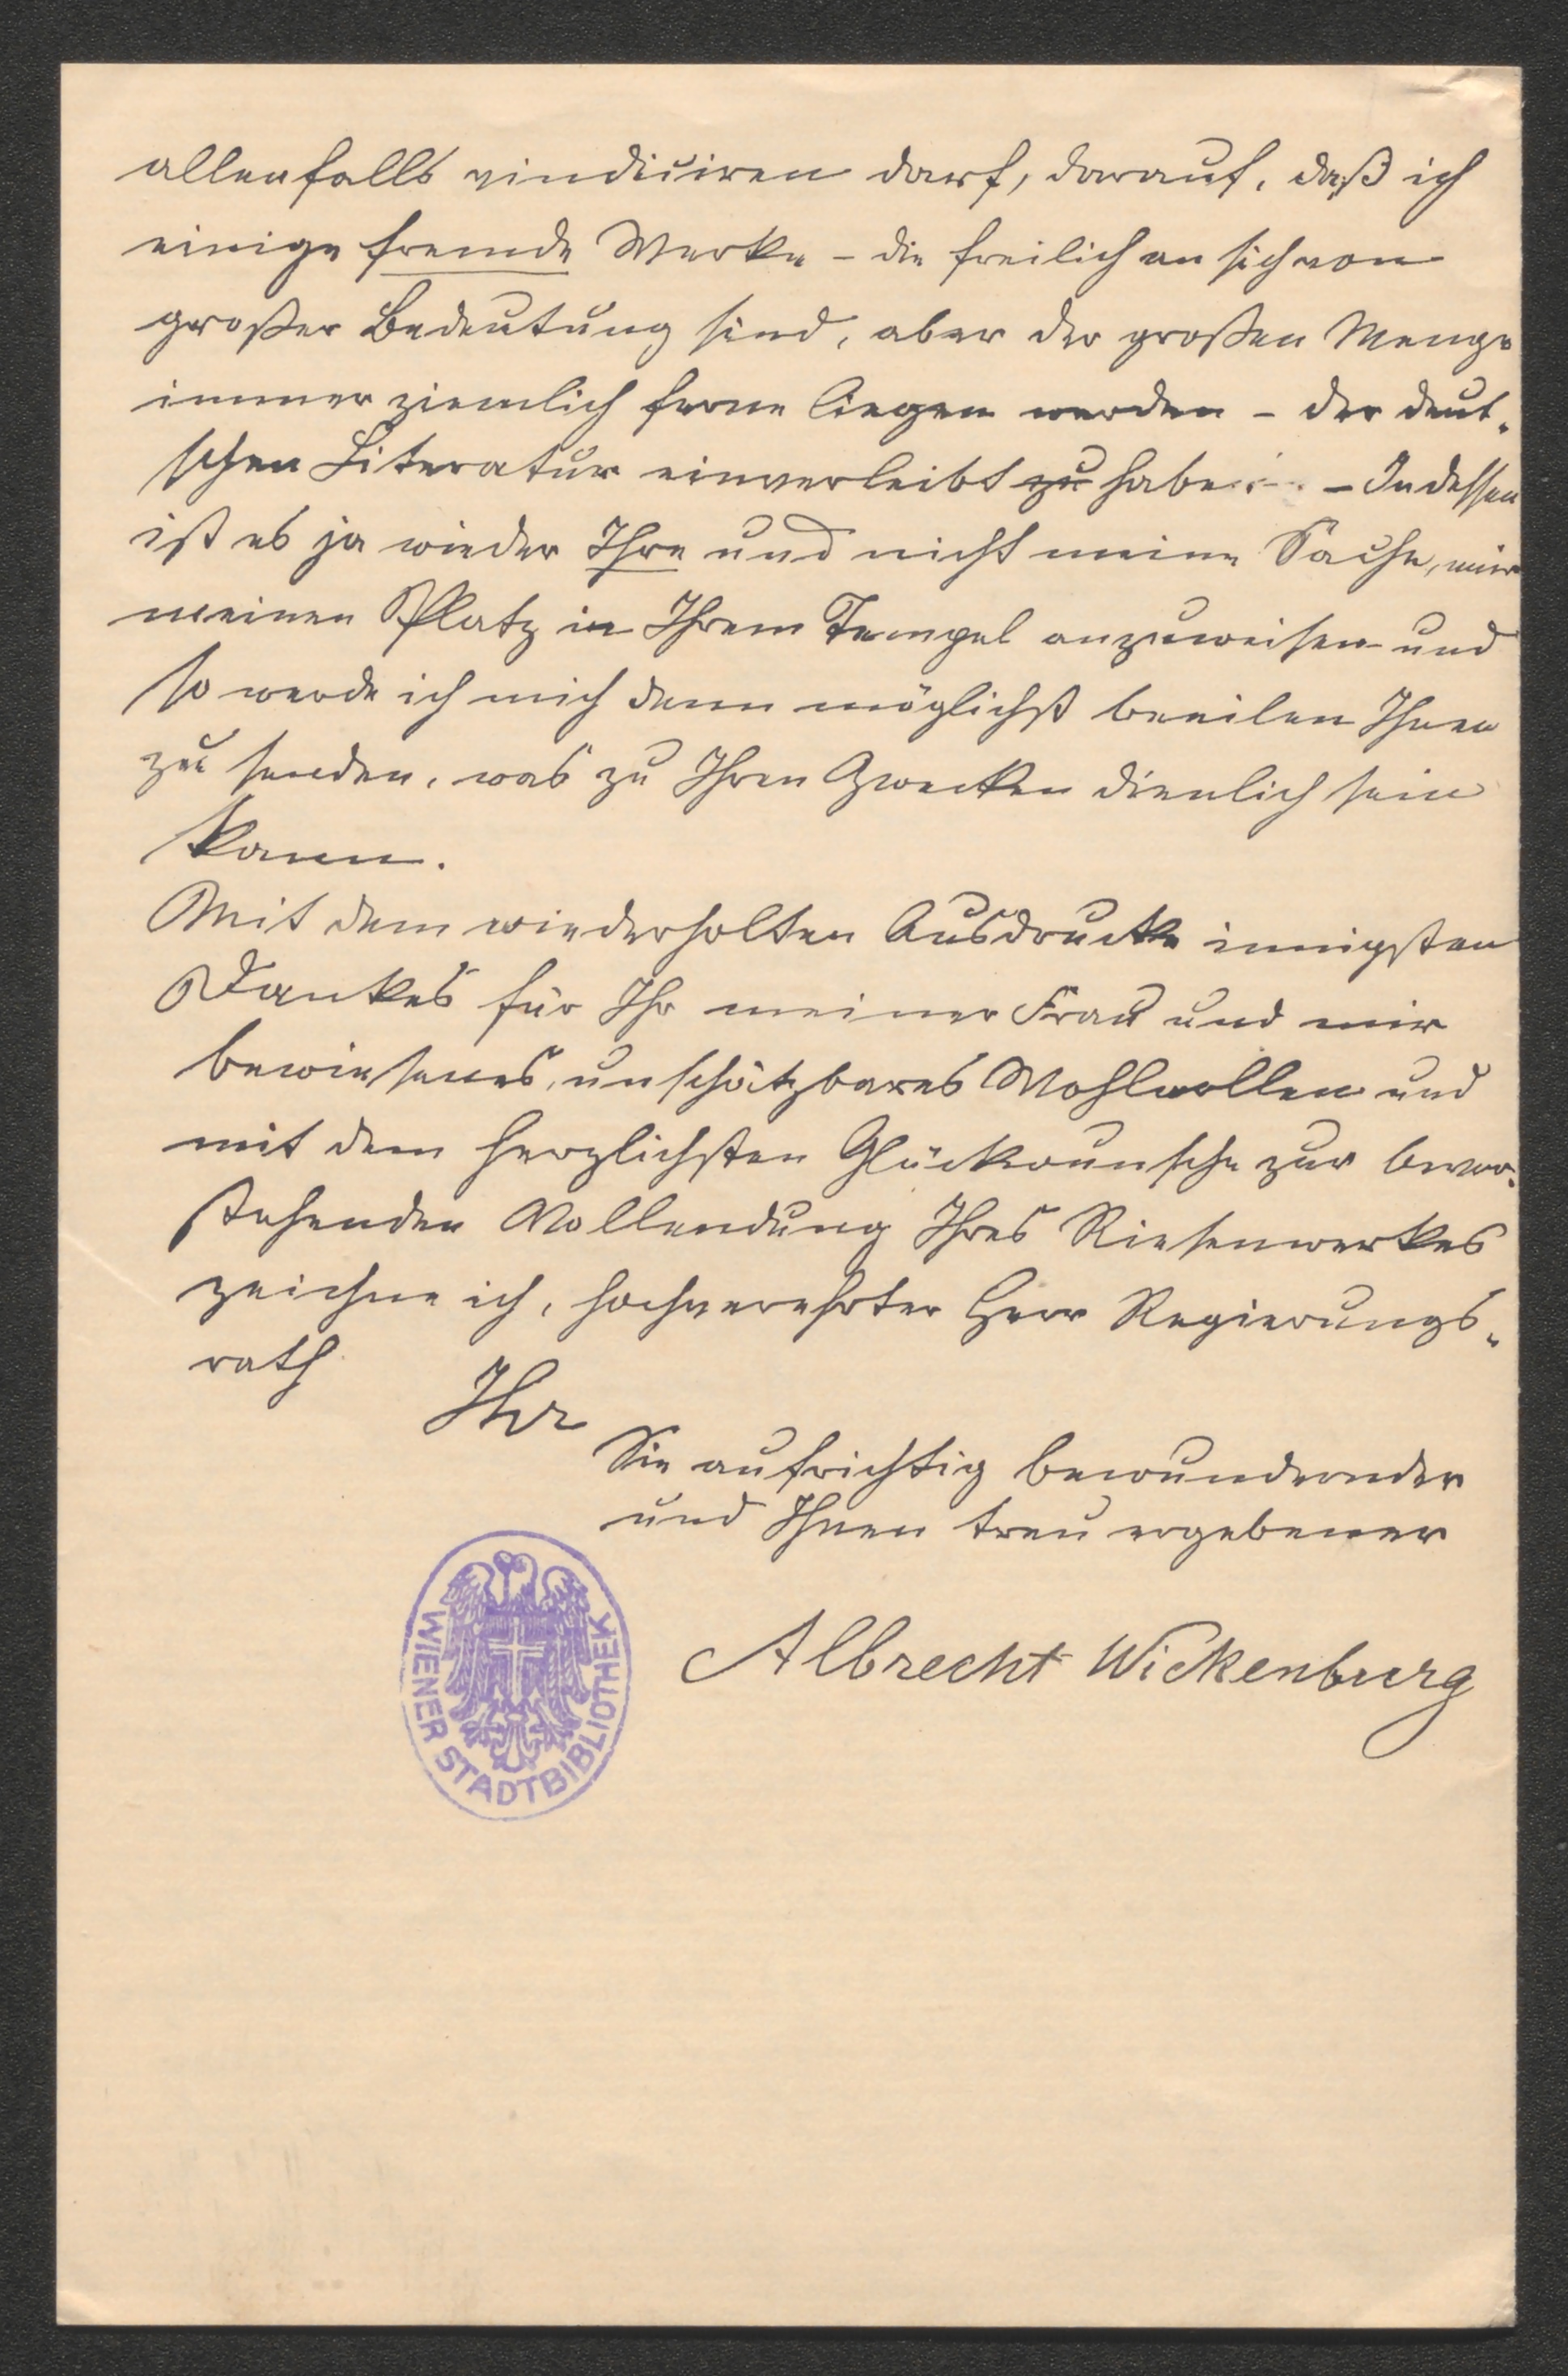 allenfalls vindiciren darf, darauf, daß ich
einige fremde Werke – die freilich an sich von
großer Bedeutung sind, aber der großen Menge
immer ziemlich ferne liegen werden – der deut-
schen Literatur einverleibt zu habe. – Indessen
ist es ja wieder Ihre und nicht meine Sache, mir
meinen Platz in Ihrem Tempel anzuweisen und
so werde ich mich denn möglichst beeilen Ihnen
zu senden, was zu Ihren Zwecken dienlich sein
kann.
Mit dem wiederholten Ausdrucke innigsten
Dankes für Ihr meiner Frau und mir
bewiesenes, unschätzbares Wohlwollen und
mit dem herzlichsten Glückwunsche zur bevor-
stehenden Vollendung Ihres Riesenwerkes
zeichne ich, hochverehrter Herr Regierungs-
rath
Ihr
Sie aufrichtig bewundernder
und Ihnen treu ergebener
Albrecht Wickenburg
WIENER STADTBIBLIOTHEK